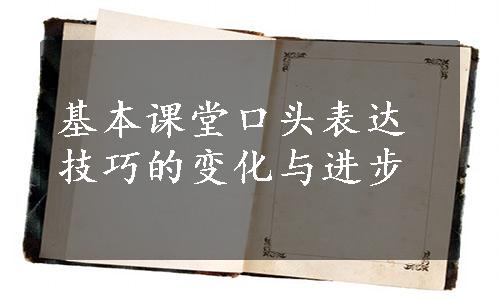 基本课堂口头表达
技巧的变化与进步